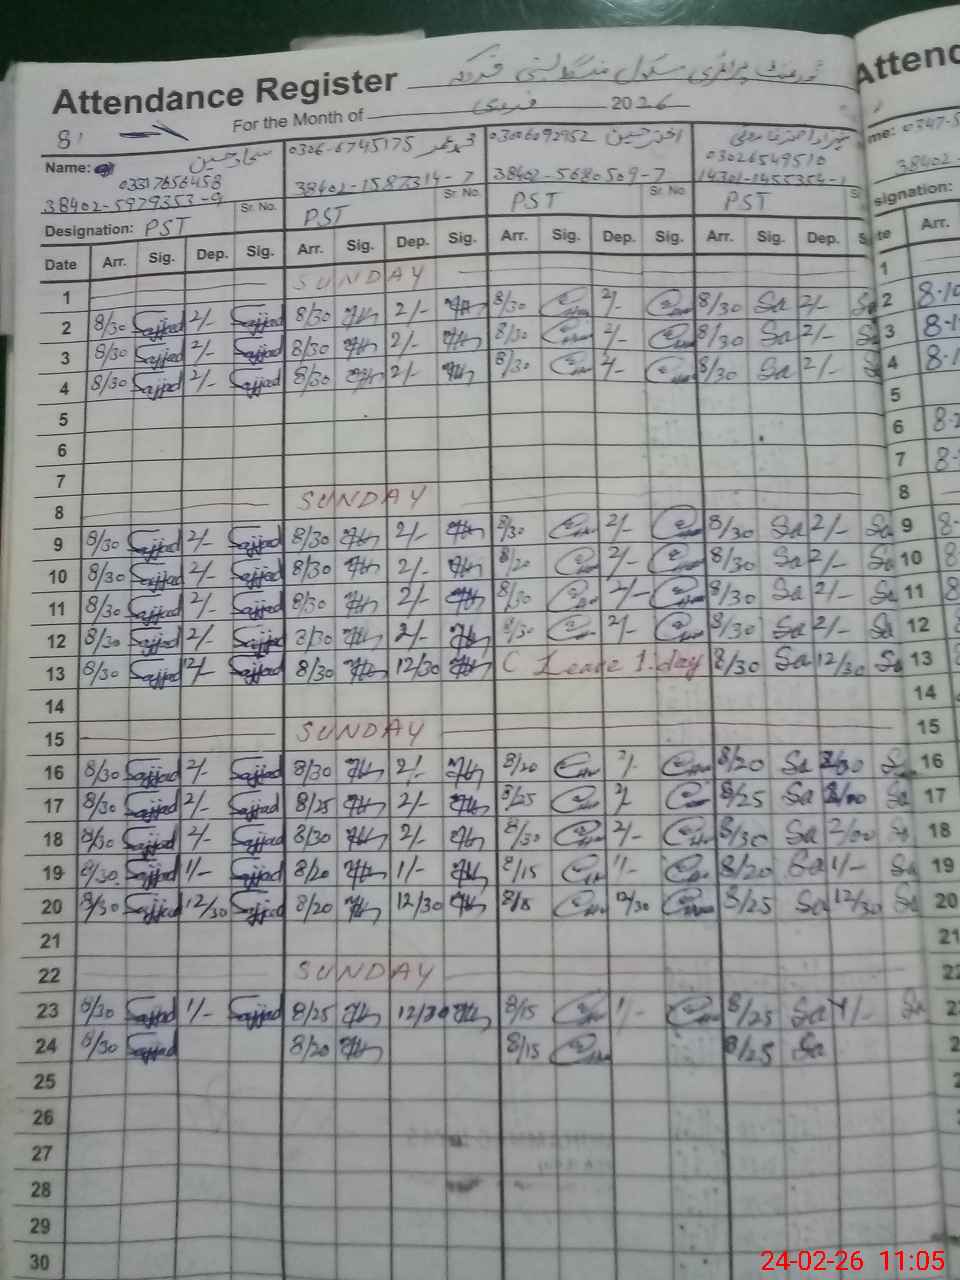 Attendance Register گورنمنٹ پرائمری سکول
For the Month of فروری 2026
Attend
Name: سجاد حسین 03317656458 38402-5979353-9
0306-6745175 38402-1587314-7
اختر حسین 03006092952 38402-5680509-7
03026549510 14301-1455354-1
me: 0347-5
38402-
Designation: PST Sr. No. PST Sr. No. PST Sr. No. PST
signation:
Date Arr. Sig. Dep. Sig. Arr. Sig. Dep. Sig. Arr. Sig. Dep. Sig. Arr. Sig. Dep. S
te Arr.
1 SUNDAY 1
2 8/30 Sajjad 2/- Sajjad 8/30 2/- 8/30 2/- 8/30 Sa 2/- Sa 2 8-10
3 8/30 Sajjad 2/- Sajjad 8/30 2/- 8/30 2/- 8/30 Sa 2/- S 3 8-1
4 8/30 Sajjad 2/- Sajjad 8/30 2/- 8/30 2/- 8/30 Sa 2/- S 4 8-1
5 5
6 6 8-2
7 7 8-
8 SUNDAY 8
9 8/30 Sajjad 2/- Sajjad 8/30 2/- 8/30 2/- 8/30 Sa 2/- Sa 9 8-
10 8/30 Sajjad 2/- Sajjad 8/30 2/- 8/20 2/- 8/30 Sa 2/- Sa 10 8
11 8/30 Sajjad 2/- Sajjad 8/30 2/- 8/30 2/- 8/30 Sa 2/- Sa 11 8
12 8/30 Sajjad 2/- Sajjad 8/30 2/- 8/30 2/- 8/30 Sa 2/- Sa 12
13 8/30 Sajjad 12/- Sajjad 8/30 12/30 C Leave 1 day 8/30 Sa 12/30 Sa 13
14 14
15 SUNDAY 15
16 8/30 Sajjad 2/- Sajjad 8/30 2/- 8/20 2/- 8/20 Sa Sa 16
17 8/30 Sajjad 2/- Sajjad 8/25 2/- 8/25 2/- 8/25 Sa Sa 17
18 8/30 Sajjad 2/- Sajjad 8/30 2/- 8/30 2/- 8/30 Sa 2/00 Sa 18
19 8/30 Sajjad 1/- Sajjad 8/20 1/- 8/15 1/- 8/20 Sa 1/- Sa 19
20 8/30 Sajjad 12/30 Sajjad 8/20 12/30 8/15 12/30 8/25 Sa 12/30 Sa 20
21 21
22 SUNDAY 22
23 8/30 Sajjad 1/- Sajjad 8/25 12/30 8/15 1/- 8/25 Sa 1/- Sa 2
24 8/30 Sajjad 8/20 8/15 8/25 Sa 2
25
26
27
28
29
30
24-02-26 11:05